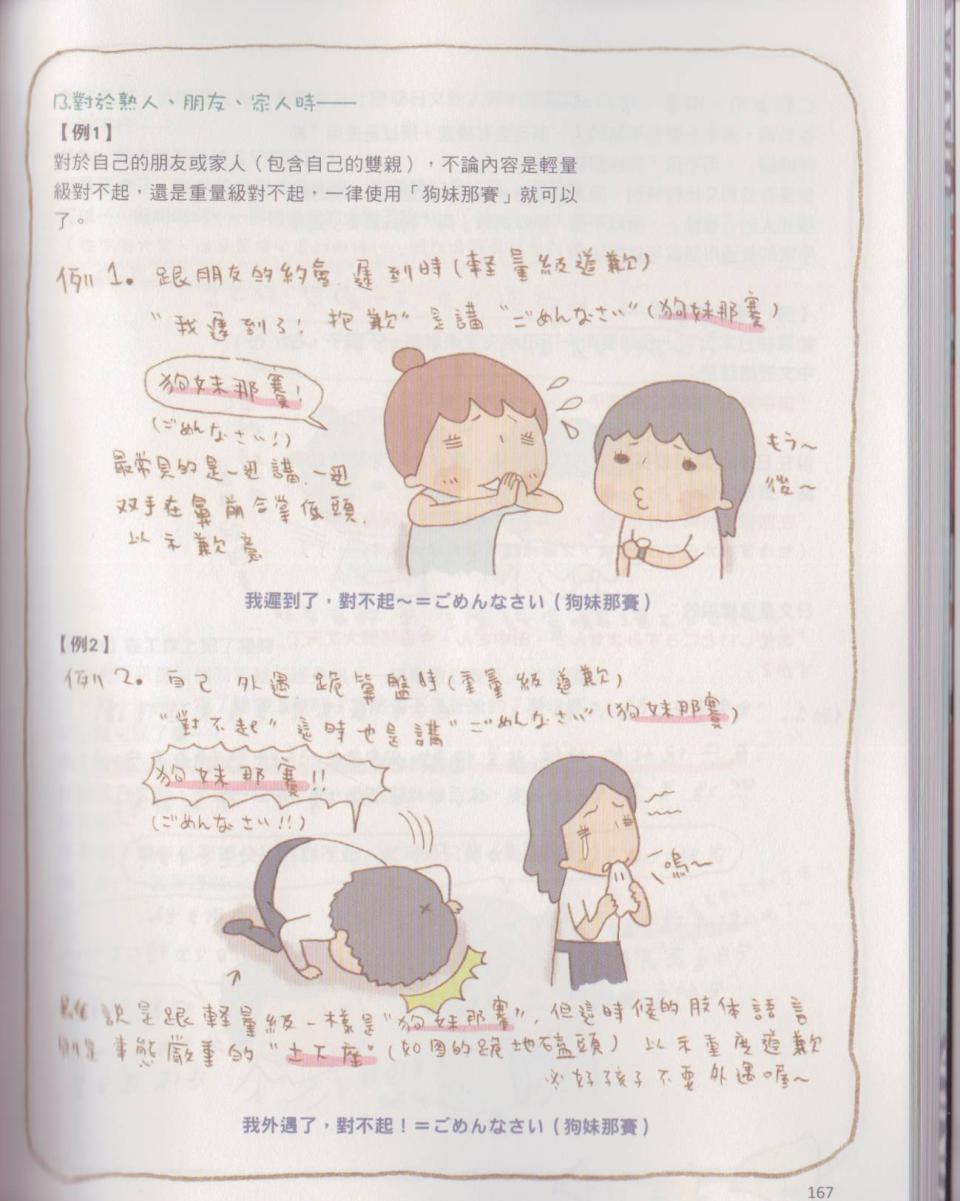 B.對於熟人、朋友、家人時——
【例1】
對於自己的朋友或家人(包含自己的雙親),不論內容是輕量
級對不起,還是重量級對不起,一律使用「狗妹那賽」就可以
了。
例1. 跟朋友的約會遲到時(輕量級道歉)
"我遲到了!抱歉"是講"ごめんなさい"(狗妹那賽)
狗妹那賽!
(ごめんなさい!)
最常見的是一邊講,一邊
双手在鼻前合掌低頭,
以示歉意
もう~
後~
我遲到了,對不起~=ごめんなさい(狗妹那賽)
【例2】
例2. 自己外遇跪算盤時(重量級道歉)
"對不起"這時也是講"ごめんなさい"(狗妹那賽)
狗妹那賽!!
(ごめんなさい!!)
嗚~
雖說是跟輕量級一樣是"狗妹那賽",但這時候的肢体語言
則是事態嚴重的"土下座"(如圖的跪地磕頭)以示重度道歉
※好孩子不要外遇喔~
我外遇了,對不起!=ごめんなさい(狗妹那賽)
167